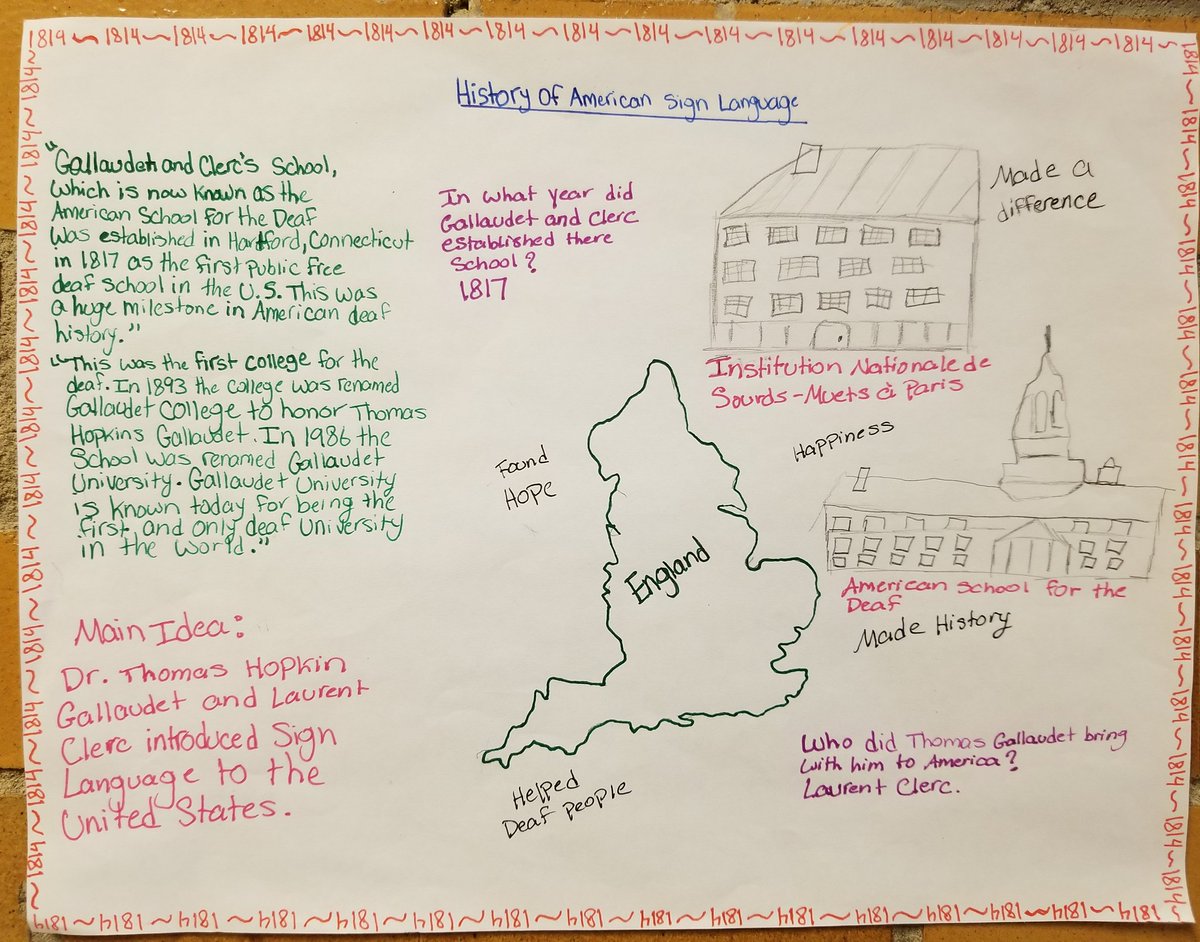 1814 ~ 1814 ~ 1814 ~ 1814 ~ 1814 ~ 1814 ~ 1814 ~ 1814 ~ 1814 ~ 1814 ~ 1814 ~ 1814 ~ 1814 ~ 1814 ~ 1814 ~ 1814 ~ 1814
History Of American Sign Language
"Gallaudet and Clerc's School,
which is now known as the
American School for the Deaf
was established in Hartford, Connecticut
in 1817 as the first public free
deaf school in the U.S. This was
a huge milestone in American deaf
history."
"This was the first college for the
deaf. In 1893 the college was renamed
Gallaudet College to honor Thomas
Hopkins Gallaudet. In 1986 the
School was renamed Gallaudet
University. Gallaudet University
is known today for being the
first and only deaf University
in the world."
Main Idea:
Dr. Thomas Hopkin
Gallaudet and Laurent
Clerc introduced Sign
Language to the
United States.
In what year did
Gallaudet and Clerc
established there
School?
1817
Made a
difference
Institution Nationale de
Sourds-Muets à Paris
Found
Hope
Happiness
England
American School for the
Deaf
Made History
Helped
Deaf people
Who did Thomas Gallaudet bring
with him to America?
Laurent Clerc.
1814 ~ 1814 ~ 1814 ~ 1814 ~ 1814 ~ 1814 ~ 1814 ~ 1814 ~ 1814 ~ 1814 ~ 1814 ~ 1814 ~ 1814 ~ 1814 ~ 1814 ~ 1814 ~ 1814